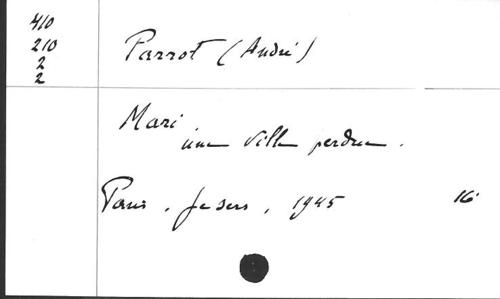 410
210
2
2
Parrot (André)
Mari
une ville perdue.
Paris, Je sers, 1945 16°